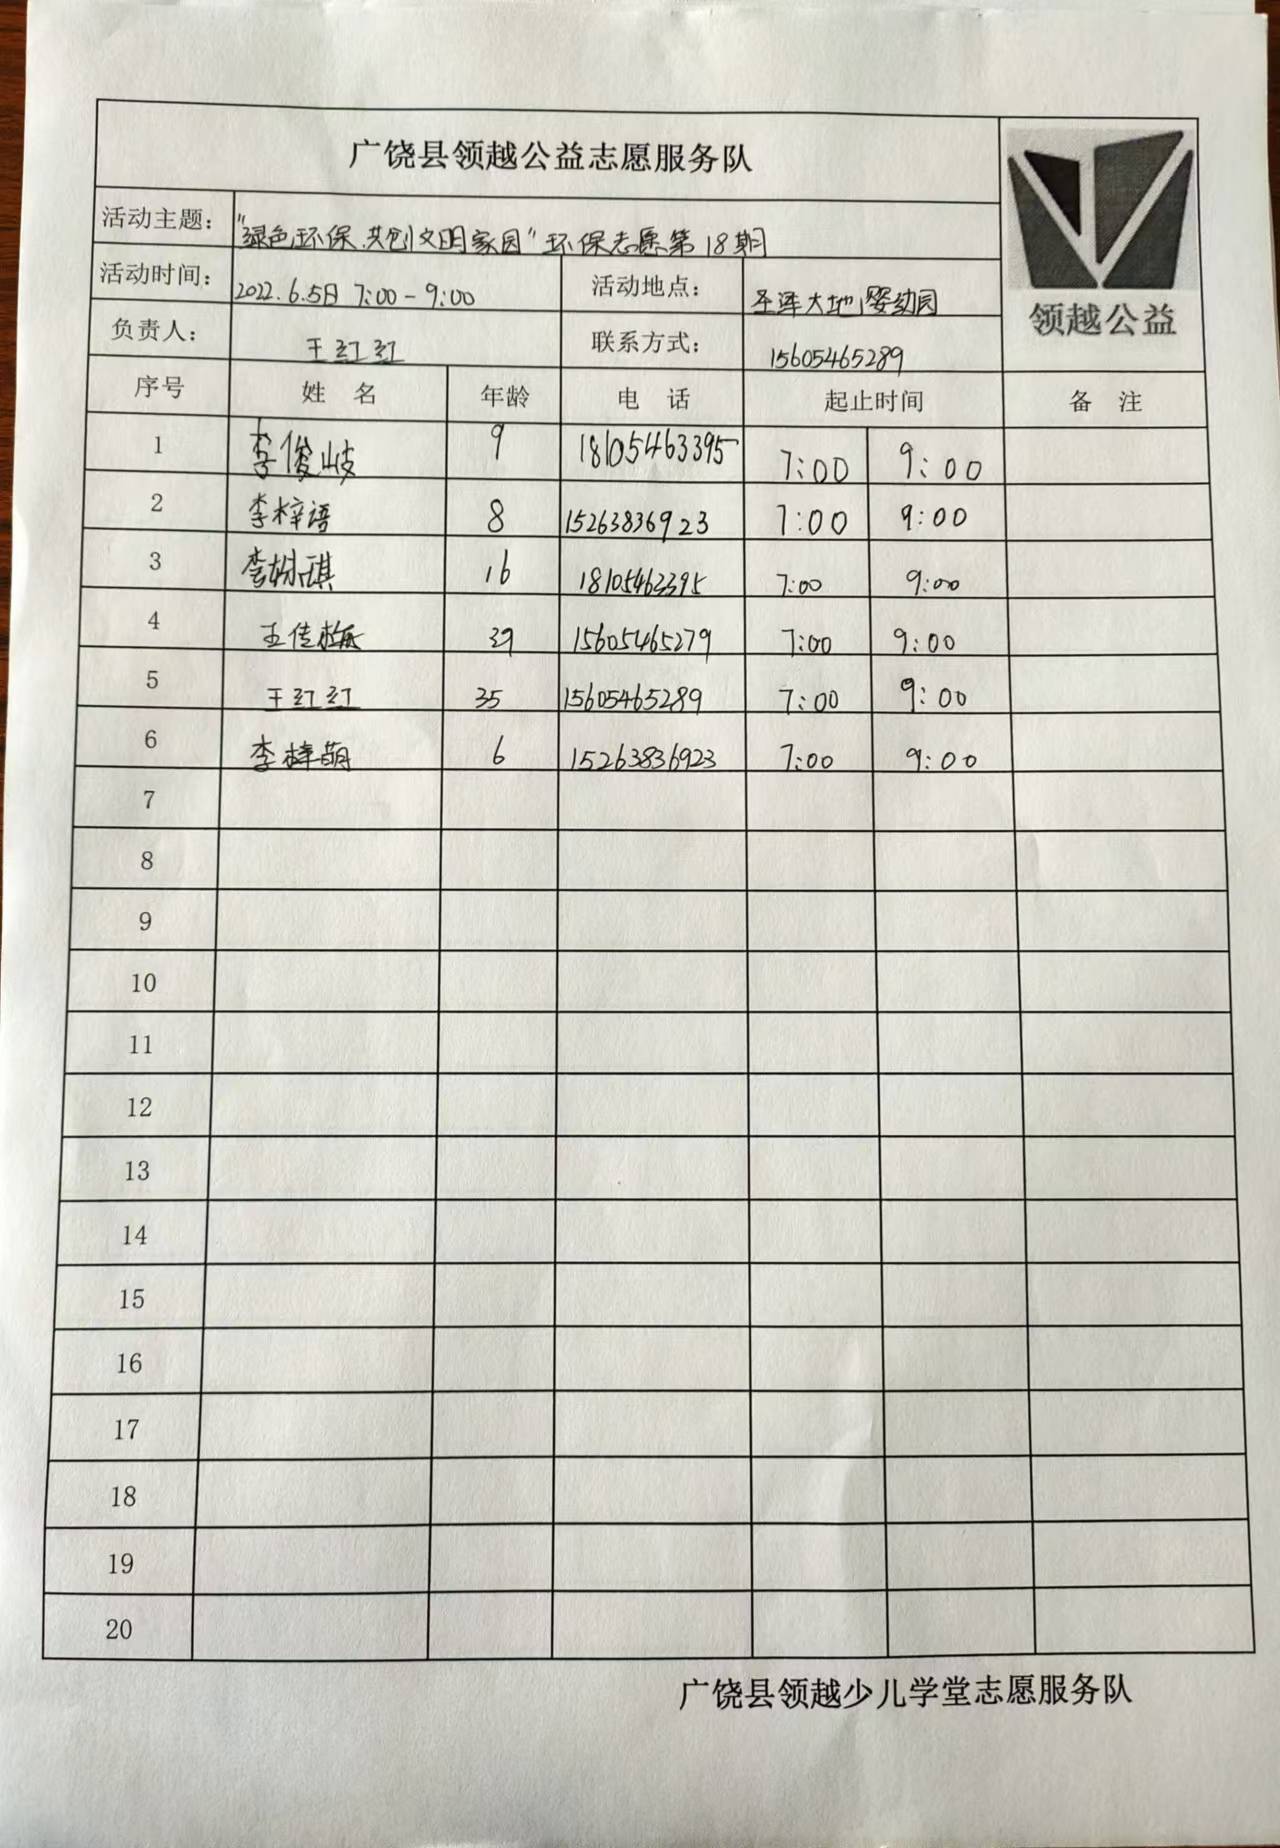 广饶县领越公益志愿服务队
领越公益
活动主题： "绿色环保.共创文明家园"环保志愿第18期
活动时间： 2022.6.5日 7:00-9:00 活动地点： 圣泽大地婴幼园
负责人： 王红红 联系方式： 15605465289
序号 姓 名 年龄 电 话 起止时间 备 注
1 李俊岐 9 18105463395 7:00 9:00
2 李梓语 8 15263836923 7:00 9:00
3 李 琪 16 18105463395 7:00 9:00
4 王传梅 39 15605465279 7:00 9:00
5 王红红 35 15605465289 7:00 9:00
6 李梓萌 6 15263836923 7:00 9:00
7
8
9
10
11
12
13
14
15
16
17
18
19
20
广饶县领越少儿学堂志愿服务队